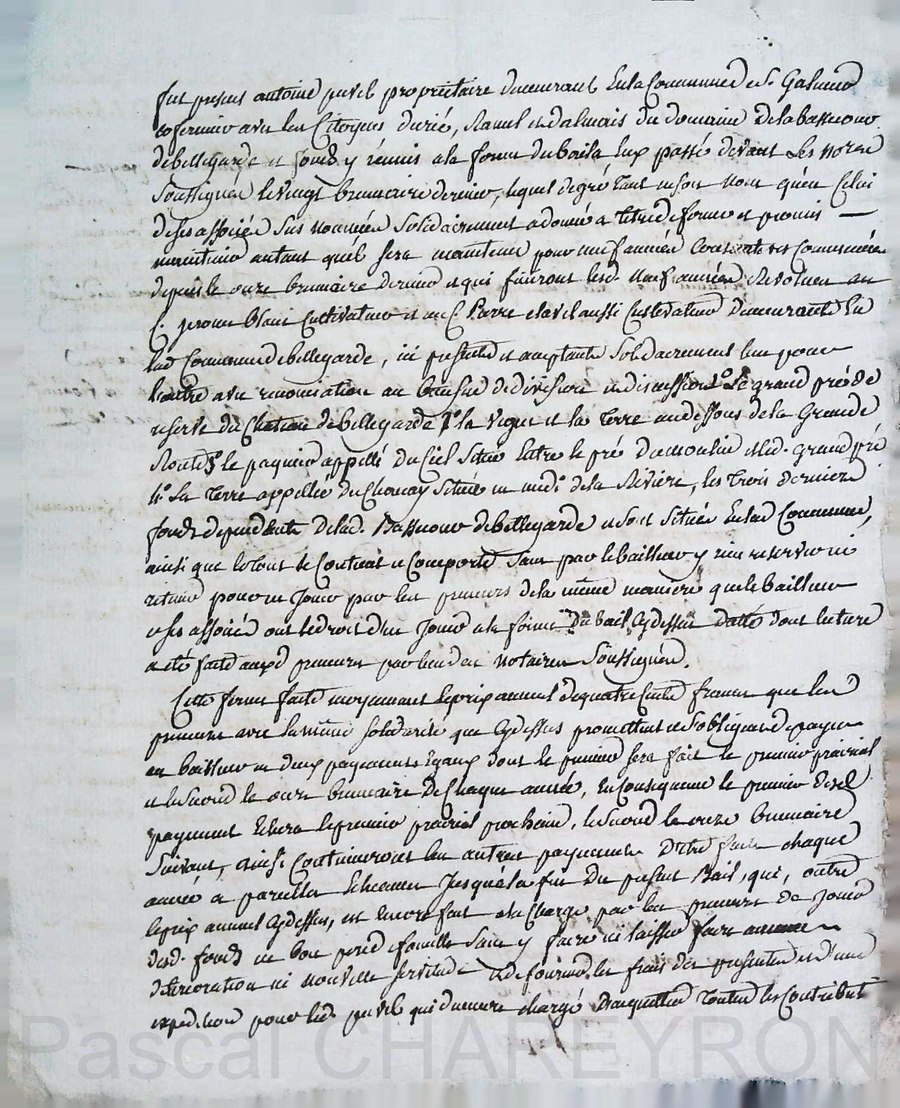 fut present antoine puvel proprietaire demeurant En la Commune de St. Galmier
cofermier avec les Citoyens durié, Ramel et dalmais du domaine de la basseour
de bellegarde et fonds y réunis a la forme du bail a Eux passé devant Les notaires
Soussignes le vingt brumaire dernier, lequel de gré tant en son nom qu'en Celui
de ses associés sus nommés Solidairement a donné a titre de ferme et promis
maintenir autant quil sera maintenu pour neuf années Consecutives Commencées
depuis le onze brumaire dernier et qui finiront lesd. neuf années Révolues au
C. Cultivateur et au C. Pierre aussi Cultivateur demeurants En
lad. Commune de bellegarde, ici presents et acceptants Solidairement l'un pour
l'autre avec renonciation au benefice de division et discussion 1° Le grand pré de
reserve du Chateau de bellegarde 2° la vigne et la Terre au dessous de la Grande
Route 3° le paquier appellé du Ciel Situé Entre le pré du moulin et led. grand pré
4° La Terre appellée du Située au midi de la Rivière, les trois derniers
fonds dependants de lad. Basseour de bellegarde et sont Situés En lad Commune,
ainsi que le tout se Contient et Comporte Sans par le bailleur y rien reserver ni
retenir pour en Jouir par les preneurs de la même maniere que le bailleur
et ses associés ont le droit d'en Jouir a la forme du bail Cydessus datté dont lecture
a été faite auxd preneurs par l'un des notaires Soussignés.
Cette ferme faite moyennant le prix annuel de quatre Cents francs que les
preneurs avec la même solidarité que Cydessus promettent et s'obligent de payer
au bailleur en deux payements Egaux dont le premier sera fait le premier prairial
et le second le onze brumaire de Chaque année, En Consequence le premier desd
payement Echera le premier prairial prochain, le second le onze brumaire
Suivant, ainsi Continueront les autres payements D'etre faits chaque
année a pareilles Echeances Jusqu'a la fin du present Bail, qui, outre
le prix annuel Cydessus, est encore fait a la Charge par les preneurs de Jouir
desd. fonds en bon pere de famille Sans y faire ni laisser faire aucune
deterioration ni nouvelle servitude et de fournir les frais des presentes et d'une
expedition pour led. puvel qui demeure chargé d'acquitter Toutes les Contributi
Pascal CHAREYRON